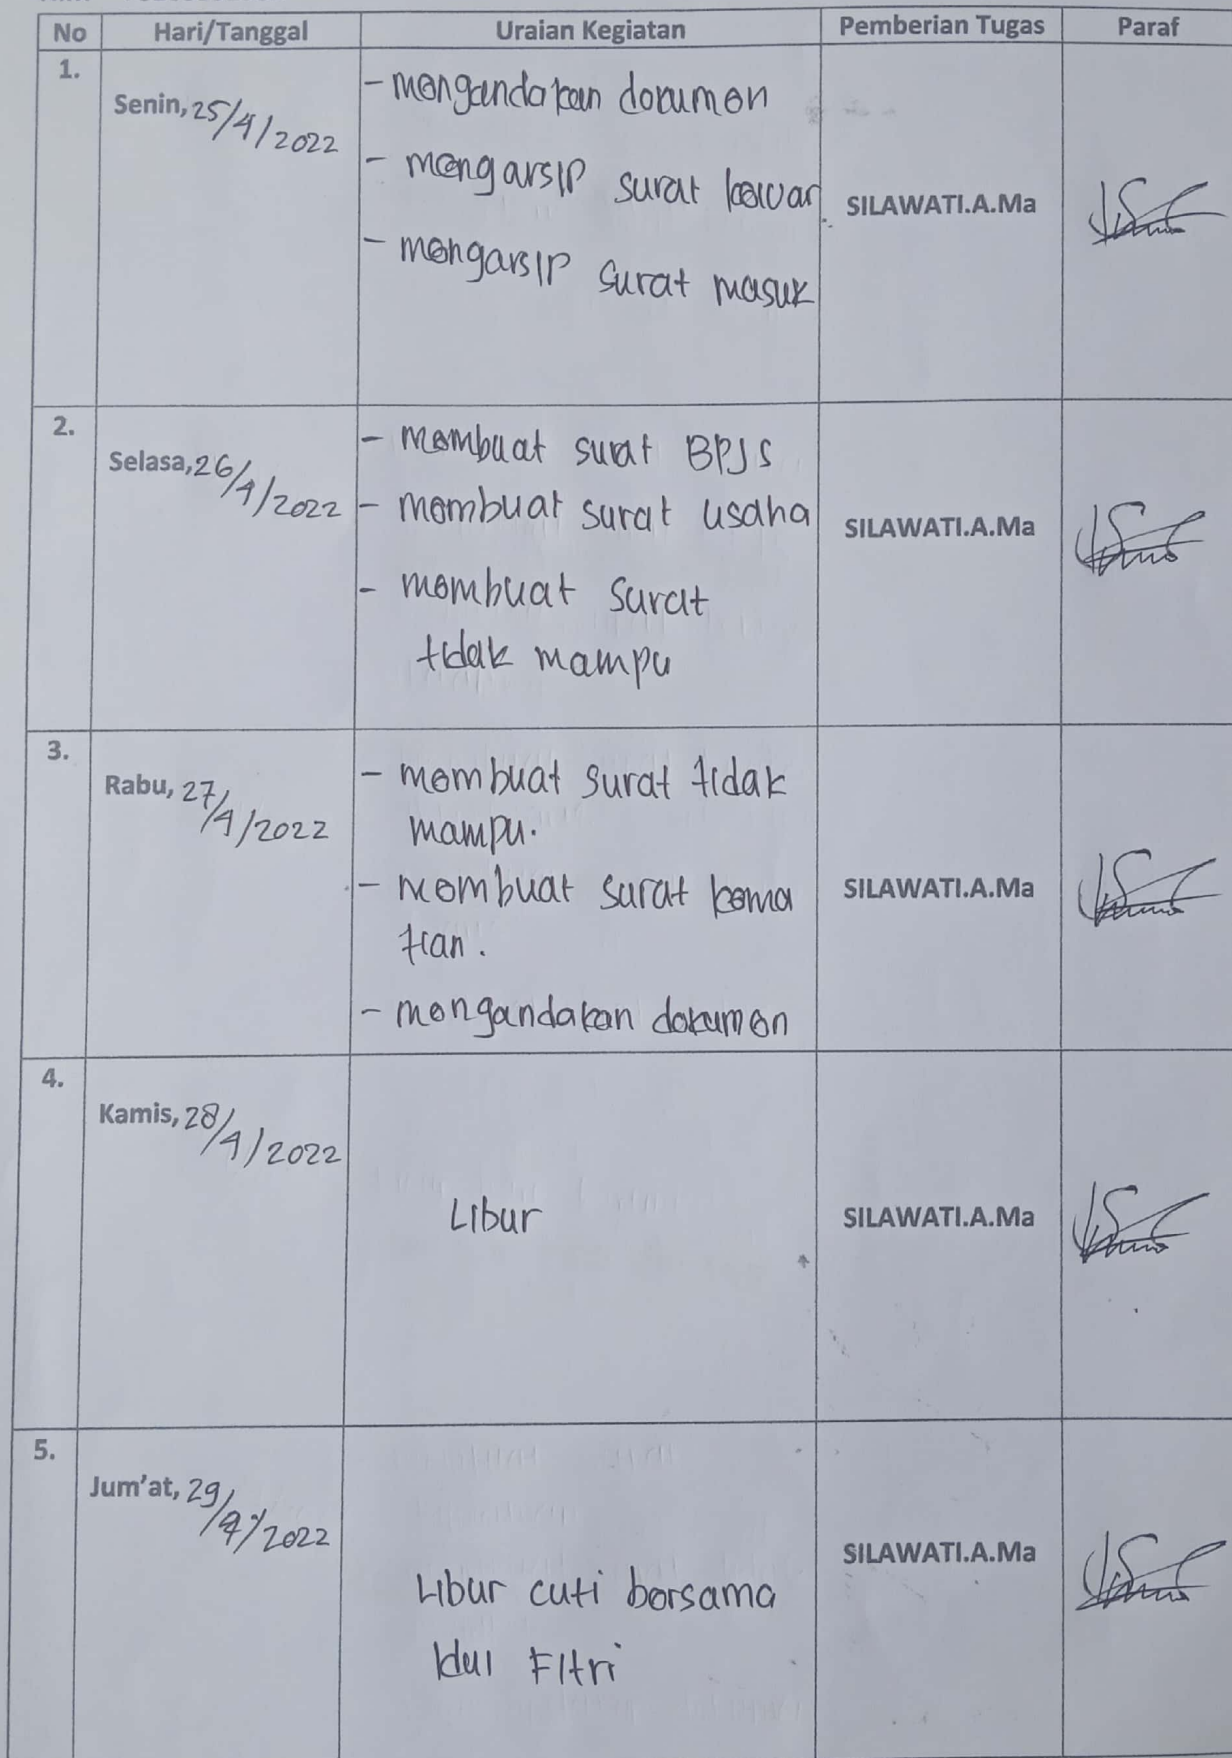 No Hari/Tanggal Uraian Kegiatan Pemberian Tugas Paraf
1.
Senin, 25/4/2022
- mengandakan dokumen
- mengarsip surat keluar
- mengarsip surat masuk
SILAWATI.A.Ma
2.
Selasa, 26/4/2022
- membuat surat BPJS
- membuat surat usaha
- membuat surat
tidak mampu
SILAWATI.A.Ma
3.
Rabu, 27/4/2022
- membuat surat tidak
mampu.
- membuat surat kema
tian.
- mengandakan dokumen
SILAWATI.A.Ma
4.
Kamis, 28/4/2022
Libur
SILAWATI.A.Ma
5.
Jum'at, 29/4/2022
Libur cuti bersama
Idul Fitri
SILAWATI.A.Ma